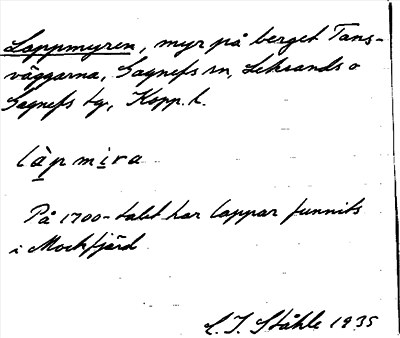 Lappmyren, myr på berget Tans-
väggarna, Gagnefs sn, Leksands o
Gagnefs tg, Kopp. l.
làpmira
På 1700-talet har lappar funnits
i Mockfjärd
C. I. Ståhle 1935